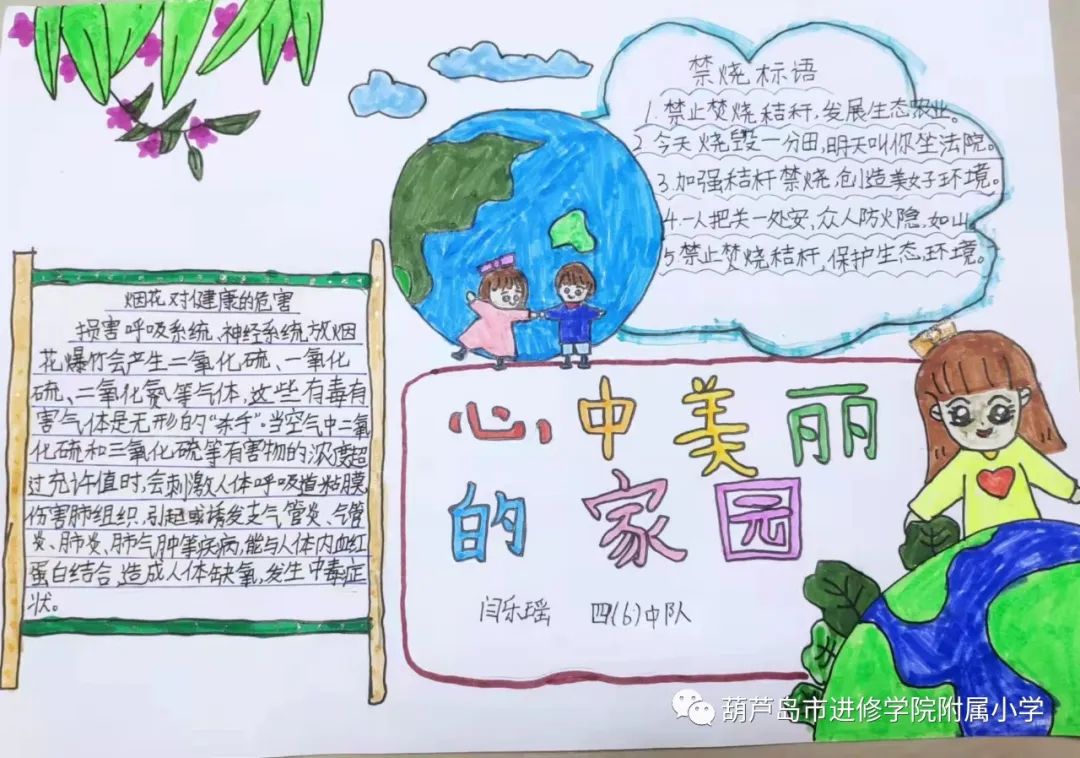 禁烧标语
1.禁止焚烧秸秆,发展生态农业。
2.今天烧毁一分田,明天叫你坐法院。
3.加强秸秆禁烧,创造美好环境。
4.一人把关一处安,众人防火隐如山。
5.禁止焚烧秸秆,保护生态环境。
烟花对健康的危害
损害呼吸系统、神经系统,放烟
花爆竹会产生二氧化硫、一氧化
硫、二氧化氮等气体,这些有毒有
害气体是无形的"杀手"。当空气中二氧
化硫和三氧化硫等有害物的浓度超
过允许值时,会刺激人体呼吸道粘膜
伤害肺组织,引起或诱发支气管炎、气管
炎、肺炎、肺气肿等疾病,能与人体内血红
蛋白结合,造成人体缺氧,发生中毒症
状。
心中美丽
的家园
闫乐瑶 四(6)中队
葫芦岛市进修学院附属小学